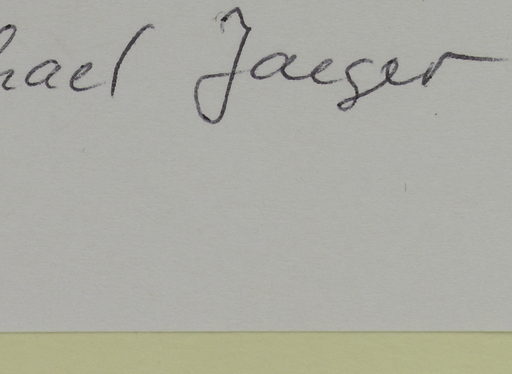 hael Jaeger